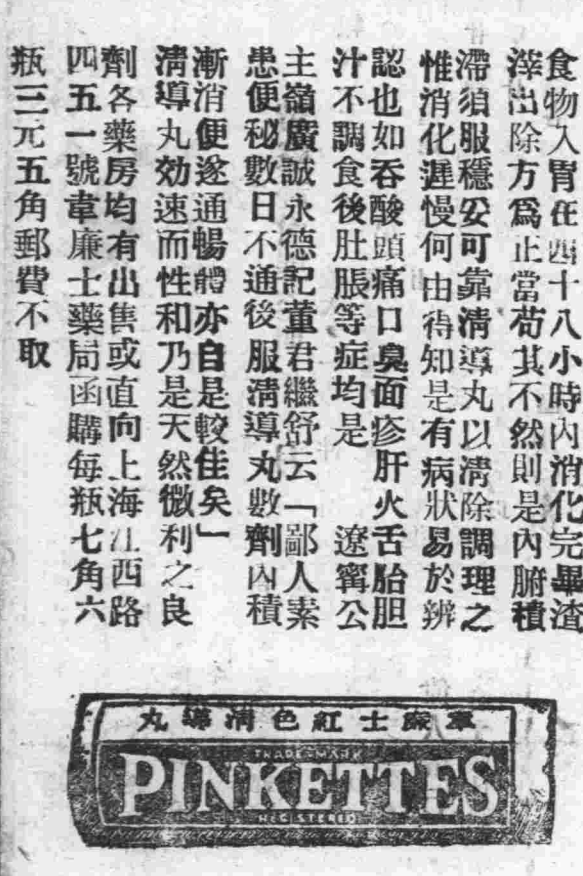 食物入胃在四十八小時內消化完畢渣
滓出除方爲正當苟其不然則是內腑積
滯須服穩妥可靠清導丸以清除調理之
惟消化遲慢何由得知是有病狀易於辨
認也如吞酸頭痛口臭面疹肝火舌胎胆
汁不調食後肚脹等症均是　遼寗公
主嶺廣誠永德記董君繼舒云「鄙人素
患便秘數日不通後服清導丸數劑內積
漸消便遂通暢體亦自是較佳矣」
清導丸効速而性和乃是天然微利之良
劑各藥房均有出售或直向上海江西路
四五一號韋廉士藥局函購每瓶七角六
瓶三元五角郵費不取
韋廉士紅色清導丸
TRADE MARK
PINKETTES
REGISTERED